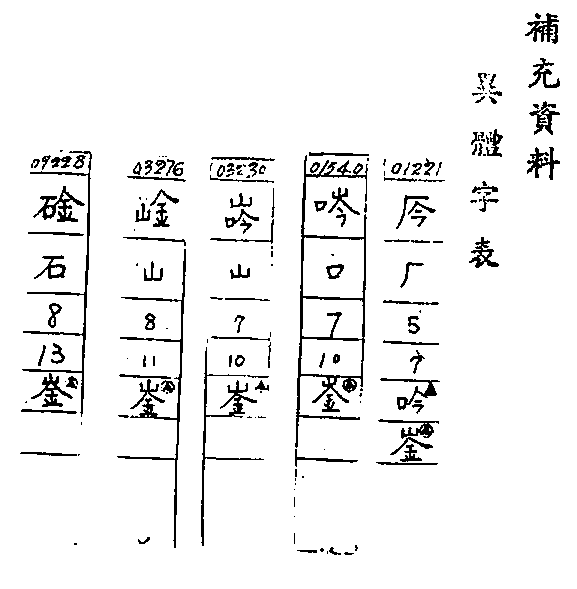 補充資料
異體字表
01221
厂
5
7
吟
崟
01540
口
7
10
崟
03230
山
7
10
崟
03276
崯
山
8
11
崟
09228
石
8
13
崟